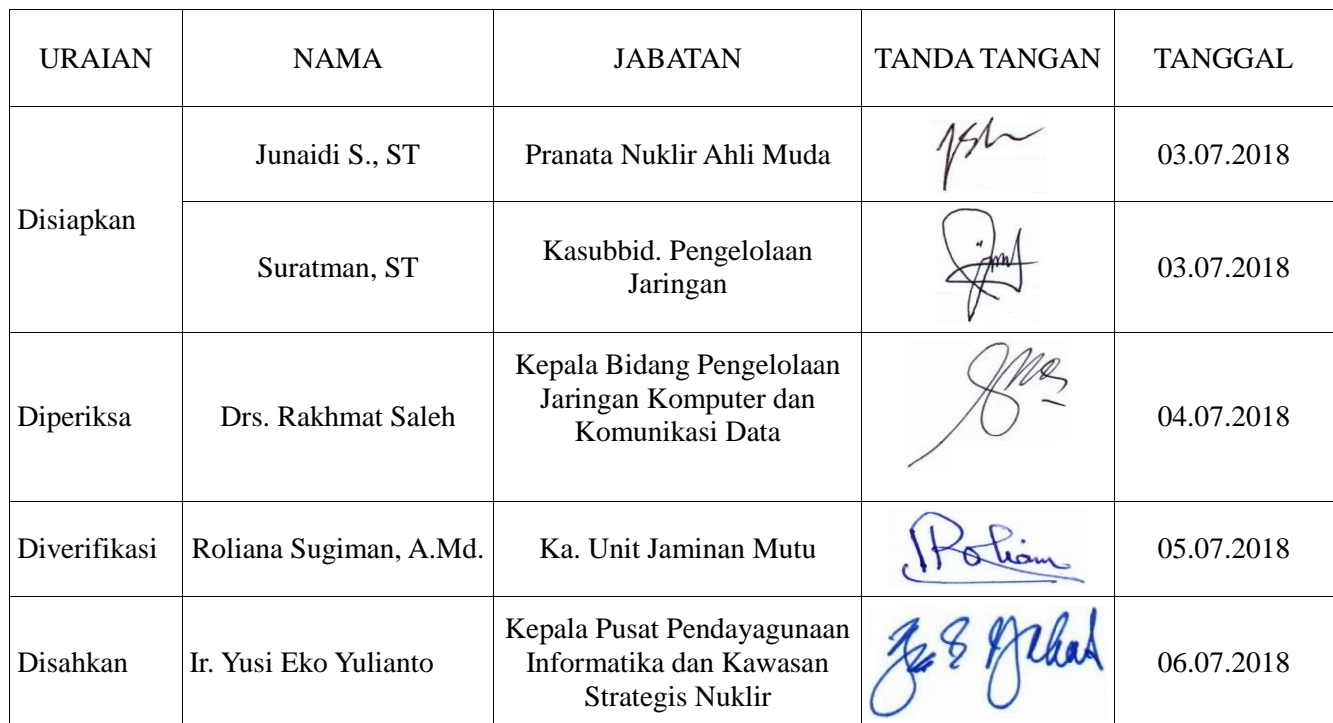 URAIAN NAMA JABATAN TANDA TANGAN TANGGAL
Disiapkan
Junaidi S., ST Pranata Nuklir Ahli Muda 03.07.2018
Suratman, ST Kasubbid. Pengelolaan
Jaringan 03.07.2018
Diperiksa Drs. Rakhmat Saleh Kepala Bidang Pengelolaan
Jaringan Komputer dan
Komunikasi Data 04.07.2018
Diverifikasi Roliana Sugiman, A.Md. Ka. Unit Jaminan Mutu 05.07.2018
Disahkan Ir. Yusi Eko Yulianto Kepala Pusat Pendayagunaan
Informatika dan Kawasan
Strategis Nuklir 06.07.2018